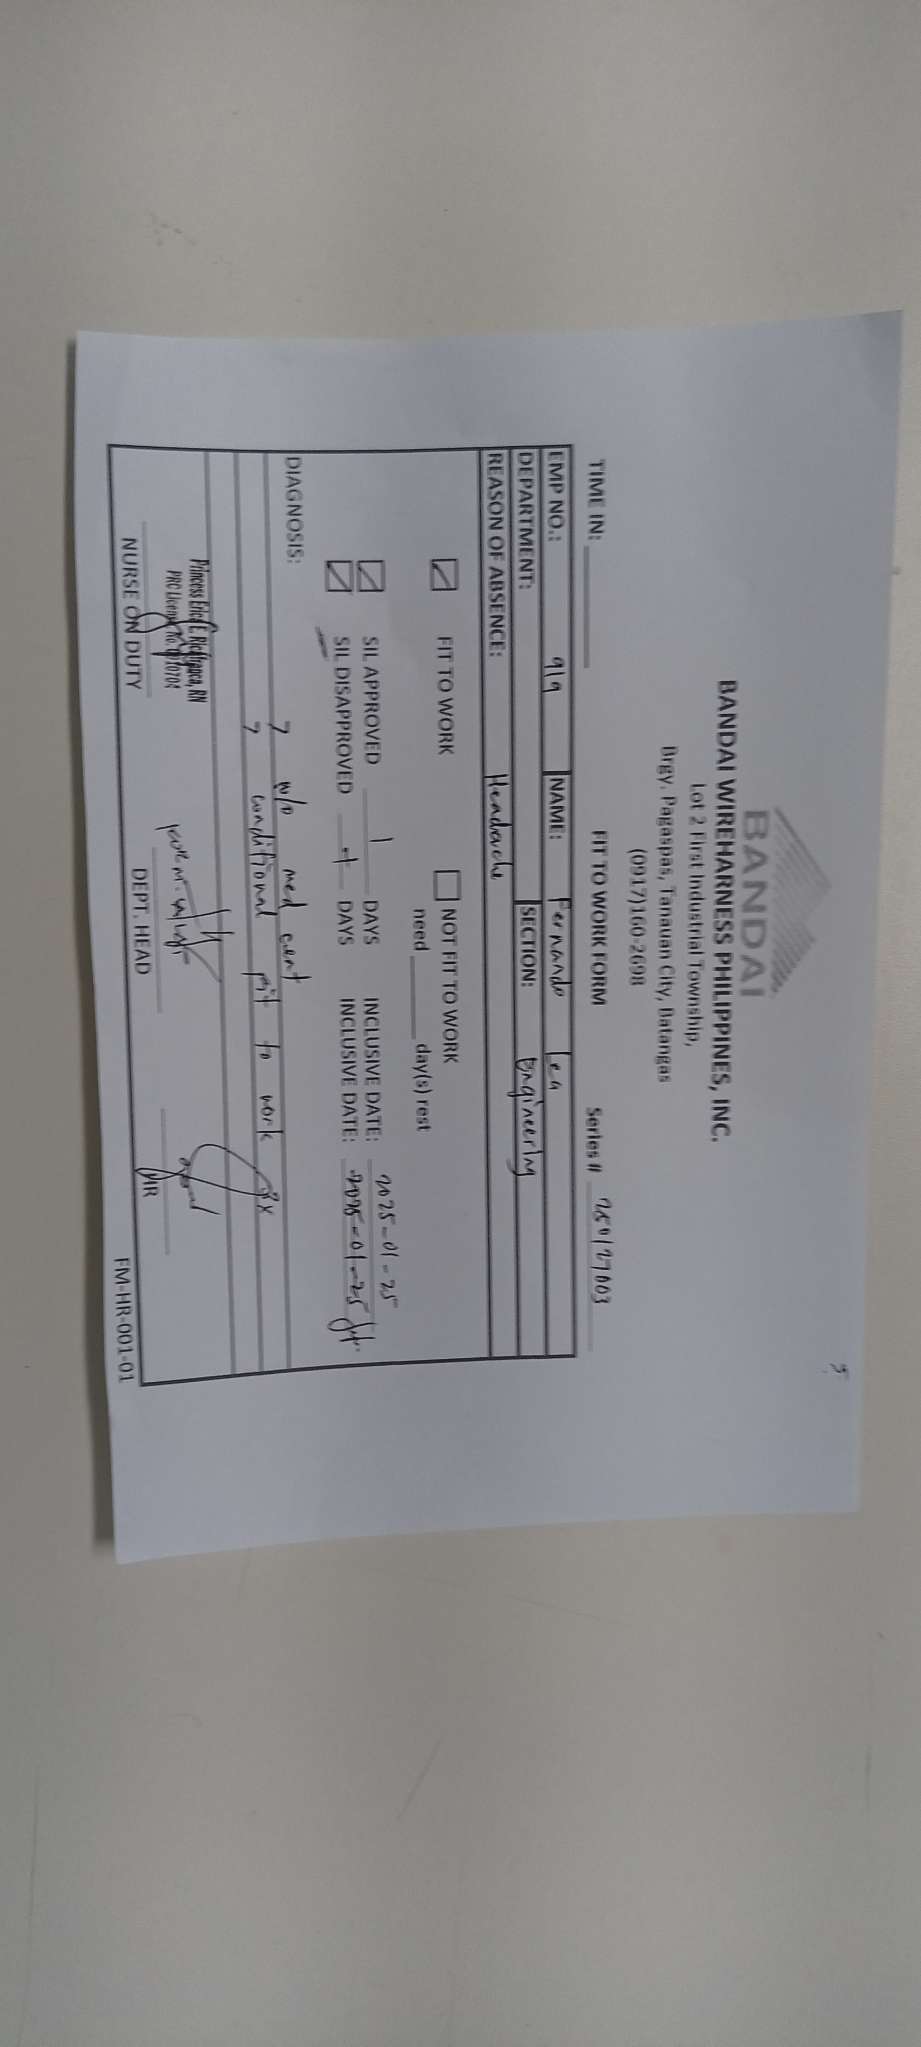 5
BANDAI
BANDAI WIREHARNESS PHILIPPINES, INC.
Lot 2 First Industrial Township,
Brgy. Pagaspas, Tanauan City, Batangas
(0917)160-2698
FIT TO WORK FORM
TIME IN: Series # 250127003
EMP NO.: 919 NAME: Fernando Lea
DEPARTMENT: SECTION: Engineering
REASON OF ABSENCE: Headache
FIT TO WORK NOT FIT TO WORK
need day(s) rest
SIL APPROVED 1 DAYS INCLUSIVE DATE: 2025-01-25
SIL DISAPPROVED 1 DAYS INCLUSIVE DATE: 2025-01-25
DIAGNOSIS:
? w/o med cert
? conditional fit to work
Princess Erica E. RN
PRC License No.
NURSE ON DUTY DEPT. HEAD HR
FM-HR-001-01